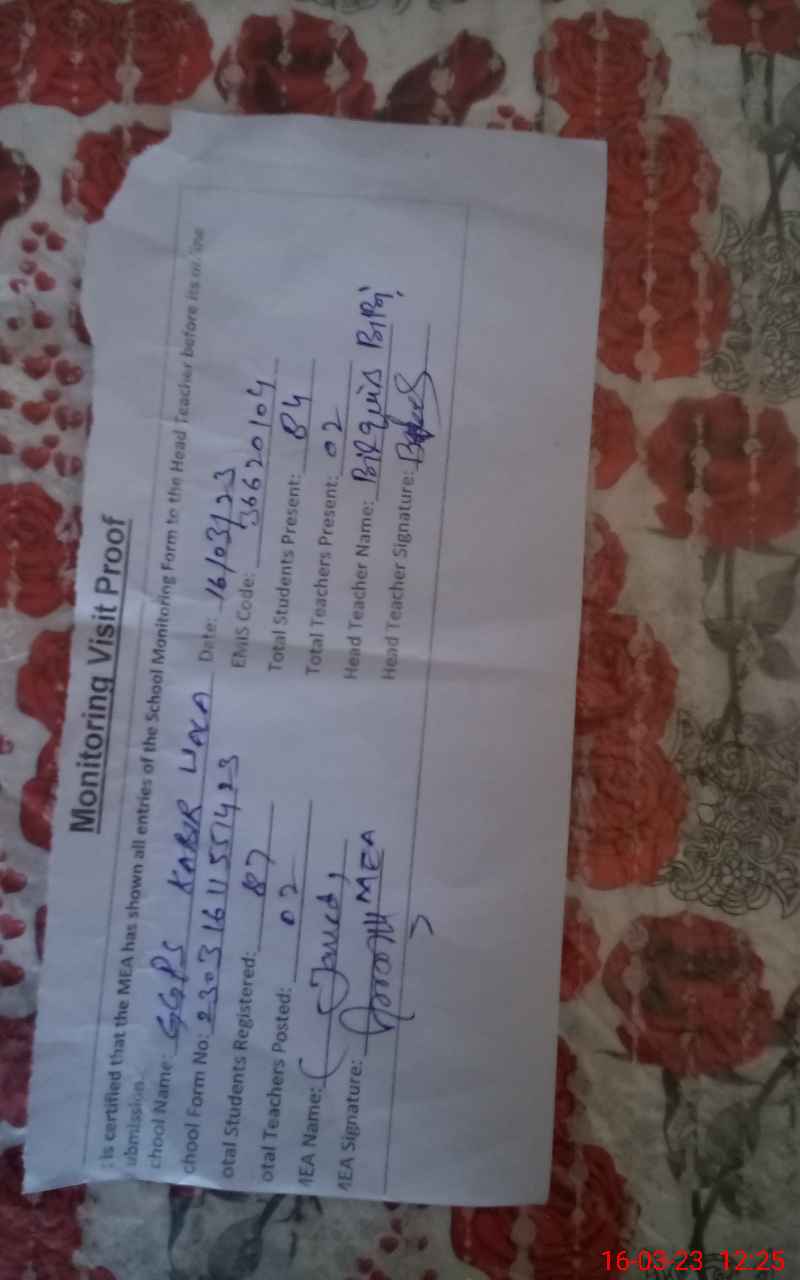 Monitoring Visit Proof
is certified that the MEA has shown all entries of the School Monitoring Form to the Head Teacher before its online
ubmission.
chool Name: GGPS KABIR WALA Date: 16/03/23
chool Form No: 23031611551423 EMIS Code: 36620104
otal Students Registered: 87 Total Students Present: 84
otal Teachers Posted: 02 Total Teachers Present: 02
MEA Name: Javed Head Teacher Name: BiRquis BiBi
MEA Signature: MEA Head Teacher Signature:
16-03-23 12:25